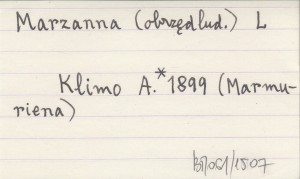 Marzanna (obrzęd lud.) L
Klimo A.* 1899 (Marmu-
riena)